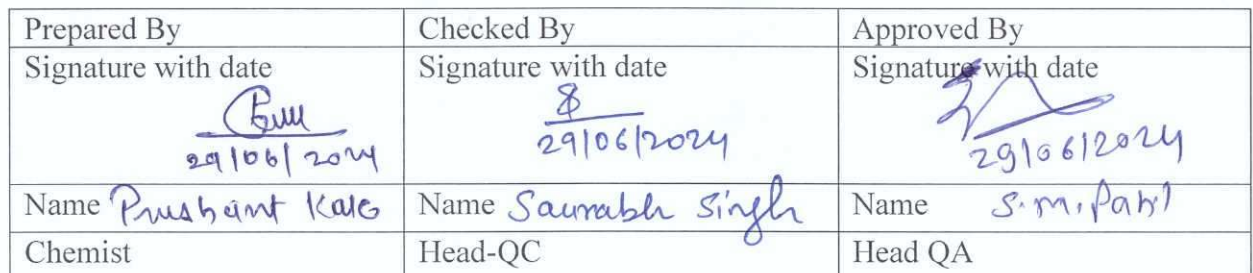 Prepared By Checked By Approved By
Signature with date Signature with date Signature with date
29/06/2024 29/06/2024 29/06/2024
Name Prashant Kale Name Saurabh Singh Name S.M. Patil
Chemist Head-QC Head QA